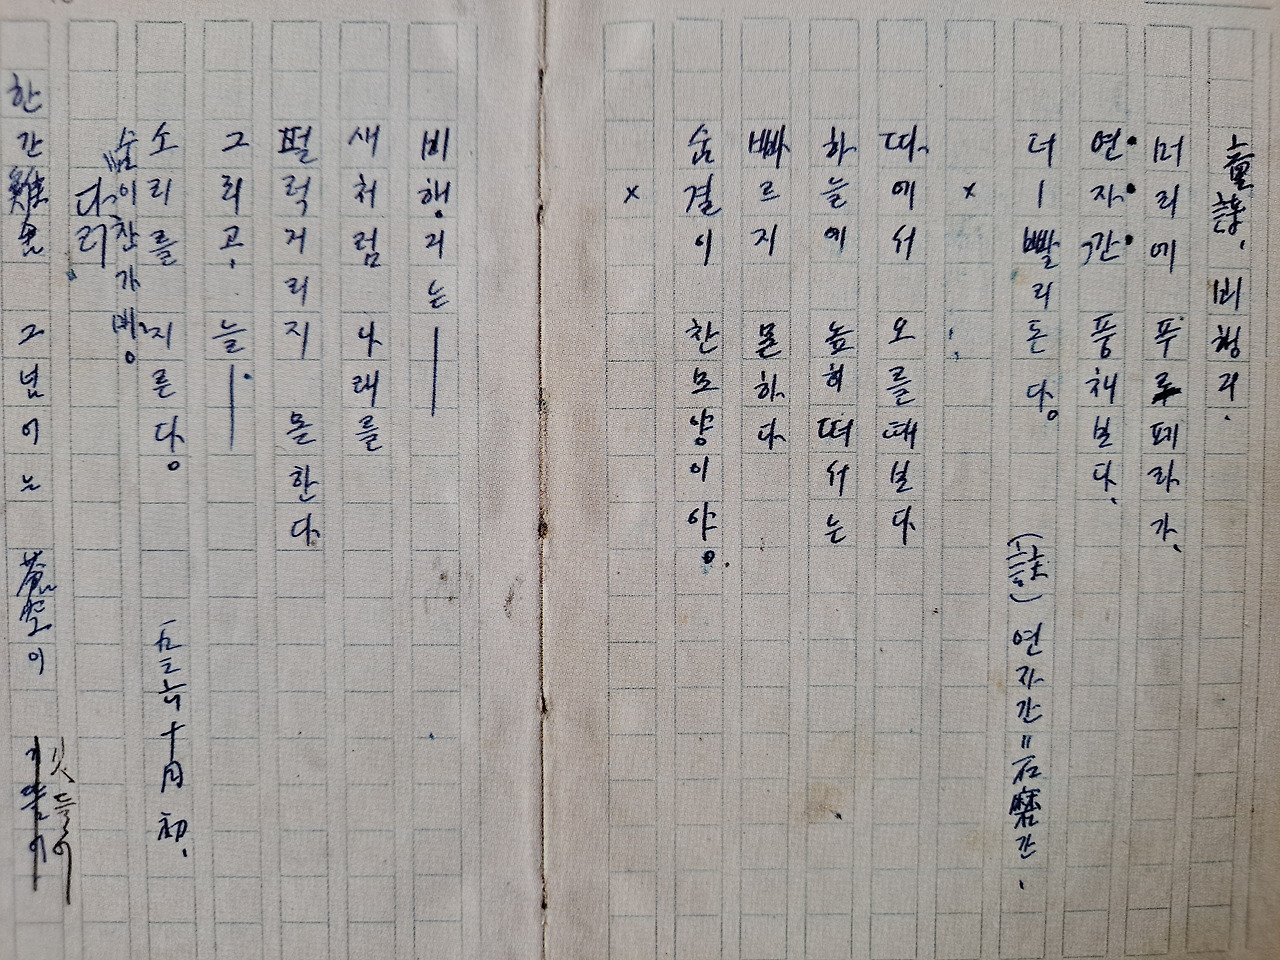 童謠、비행긔.
머리에 푸로페라가、
연자간 풍채보다、
더ㅣ빨리돈다。
(註) 연자간=石磨간.
×
따、에서 오를때보다
하늘에 높히떠서는
빠르지 몯하다
숨결이 찬모양이야。
×
비행긔는――
새처럼 나래를
펄럭거리지 몯한다、
그리고、늘――
소리를 지른다。
숨이찬가배。
一九三六、十月初.
다리
한간鷄舍 그넘에는 蒼空이 깃들어